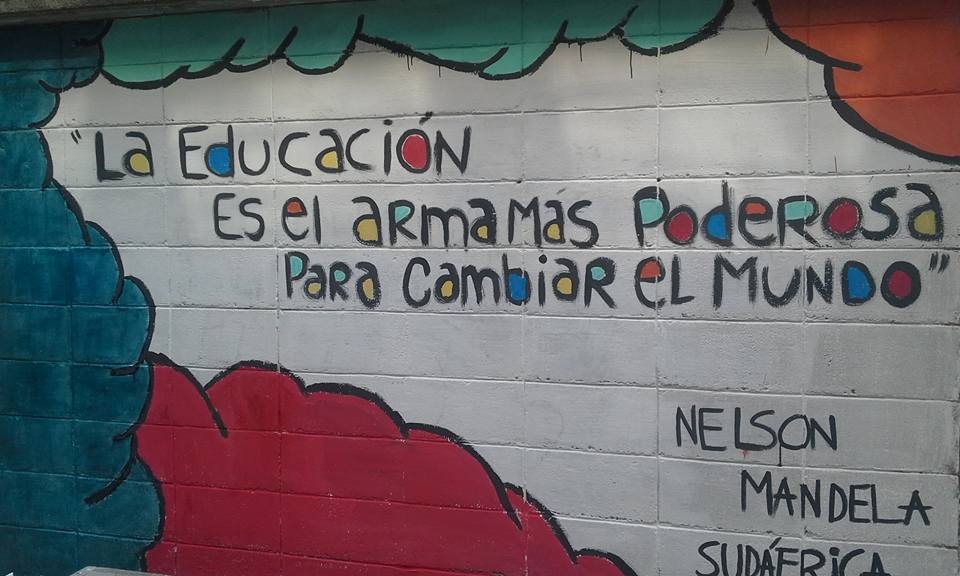 "La Educación
Es el arma mas Poderosa
Para Cambiar el Mundo"
NELSON
MANDELA
SUDÁFRICA